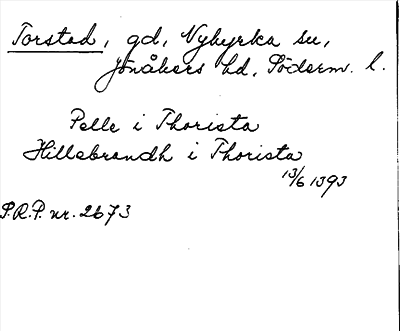 Torstad, gd, Nykyrka sn,
Jönåkers hd, Söderm. l.
Pelle i Thorista
Hillebrandh i Thorista
13/6 1393
S.R.P. nr. 2673